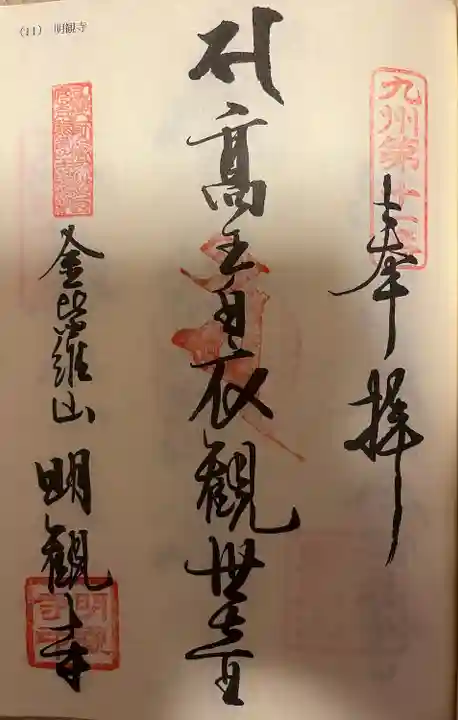 (11) 明観寺
九州第十一番
奉拝
高王白衣観世音
金比羅山 明観寺